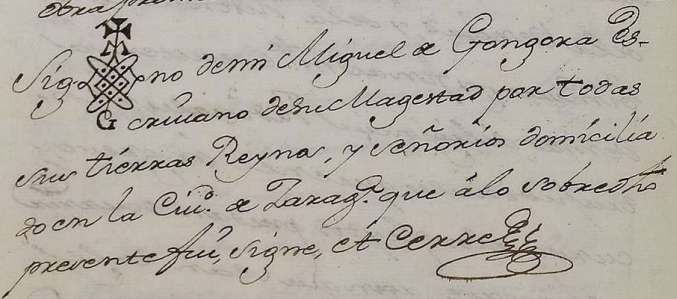 Sig no de mi Miguel de Gongora Es-
crivano de su Magestad por todas
sus tierras Reynos, y señorios domicilia
do en la Ciud. de Zaragª. que á lo sobredho
presente fui, signe, et Cerre